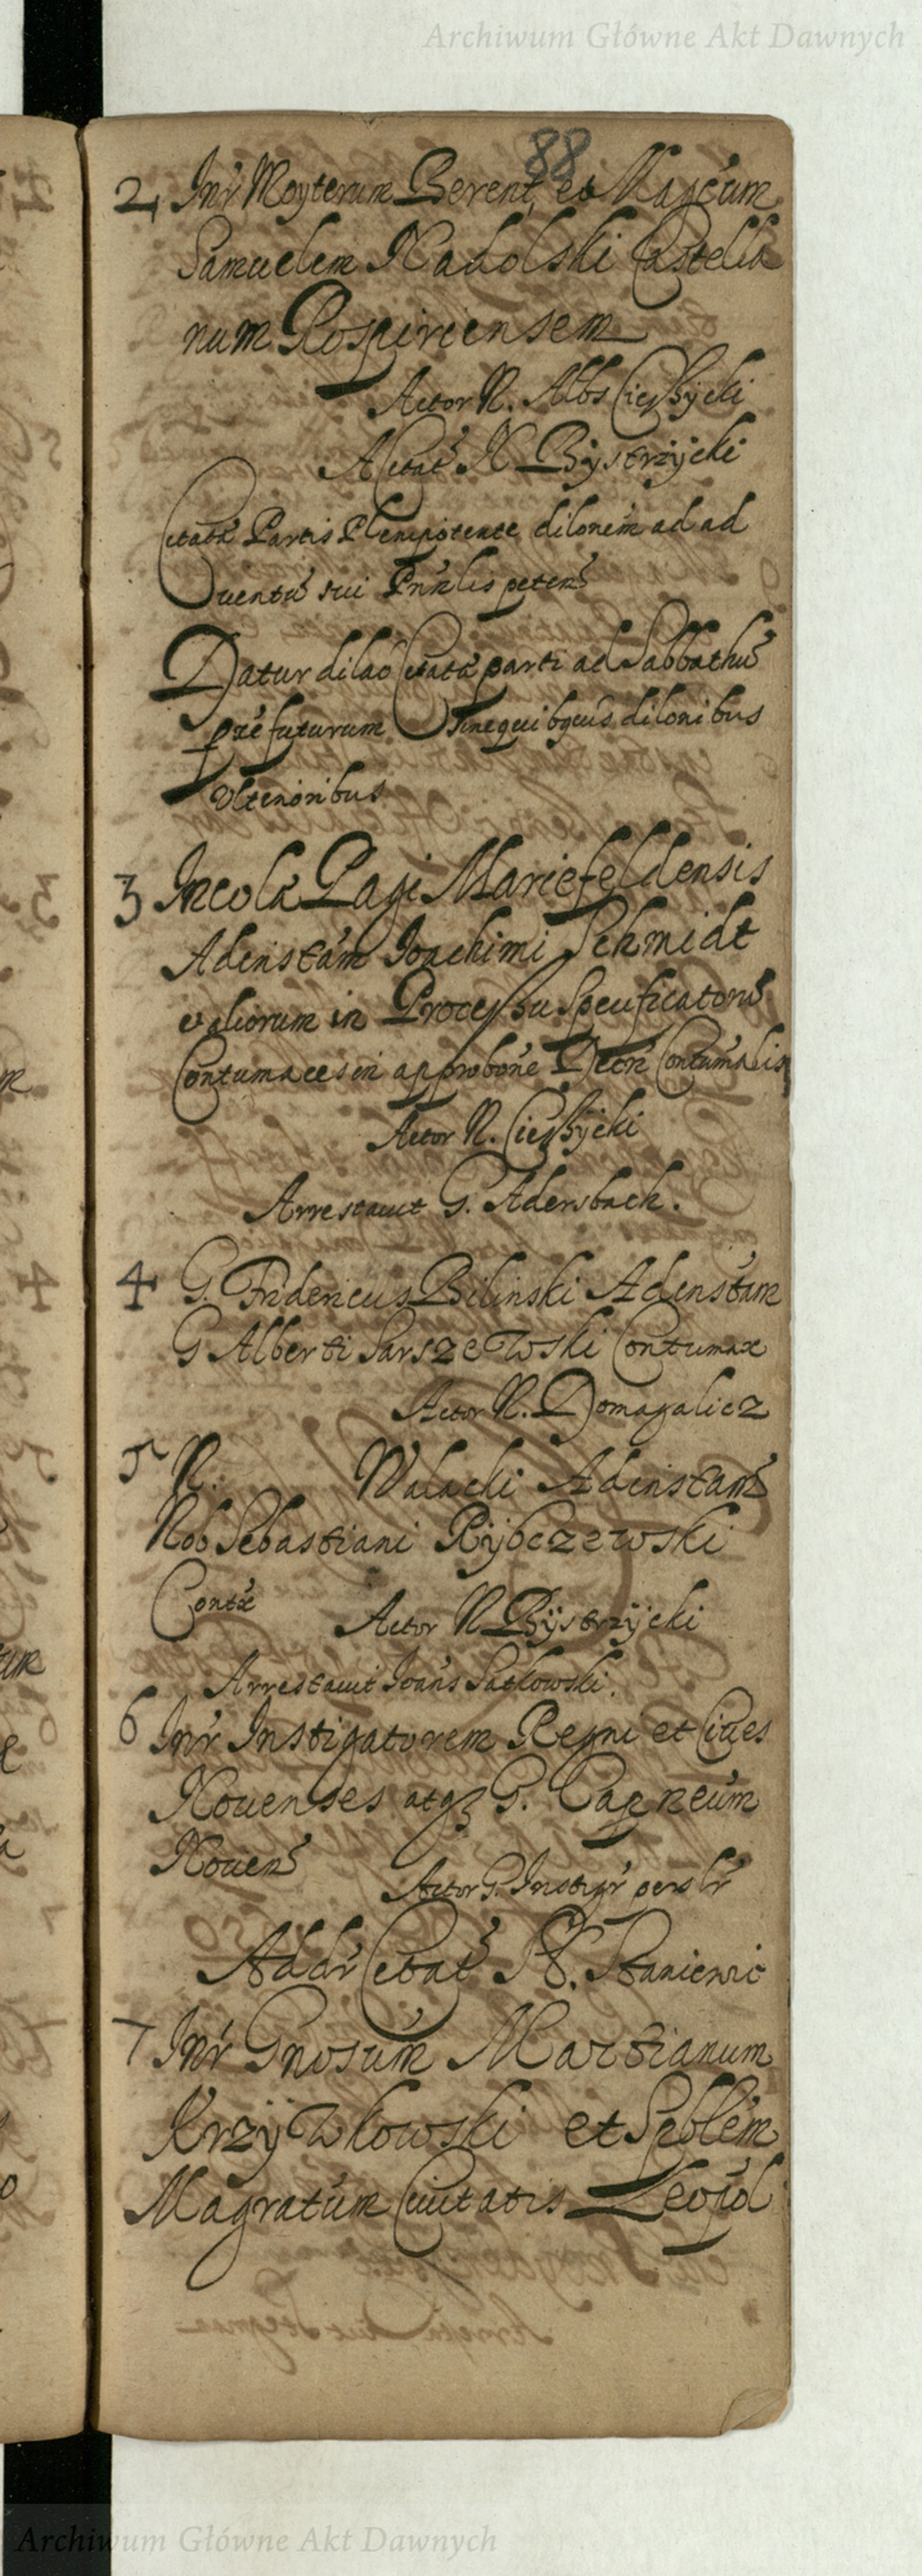 Archiwum Główne Akt Dawnych
88
2 Inr Moyterum Berent, et Magcum
Samuelem Nadolski Castella
num Rospiriensem
Actor N. Albs Cieszÿcki
A Citat N Bÿstrzÿcki
Citata Partis Plenipotente dilonem ad ad
uentu sui Prńlis petens
Datur dilao Citata parti ad Sabbathu
pxe futurum sine quibqus dilonibus
Ulterioribus
3 Incola Pagi Mariefeldensis
Ad instam Joachimi Schmidt
et aliorum in Processu Specificatoru
Contumaces in approbone Decre Contumalis
Actor N. Cieszÿcki
Arrestauit G. Adersbach.
4 G. Fridericus Bilinski Ad instam
G Alberti Sarszewski Contumax
Actor N. Domagalicz
5 N. Walacki Ad instam
Nob Sebastiani Rÿbczewski
Contx
Actor N Bÿstrzÿcki
Arrestauit Joans Satkowski.
6 Inr Instigatorem Regni et Ciues
Nouenses atqz G. Capneum
Nouens
Actor G. Instigr perslr
Addr Citat N. Staniewic
7 Inr Gnosum Martianum
Krzÿwkowski et Spblem
Magratum Ciuitatis Leopol
Archiwum Główne Akt Dawnych